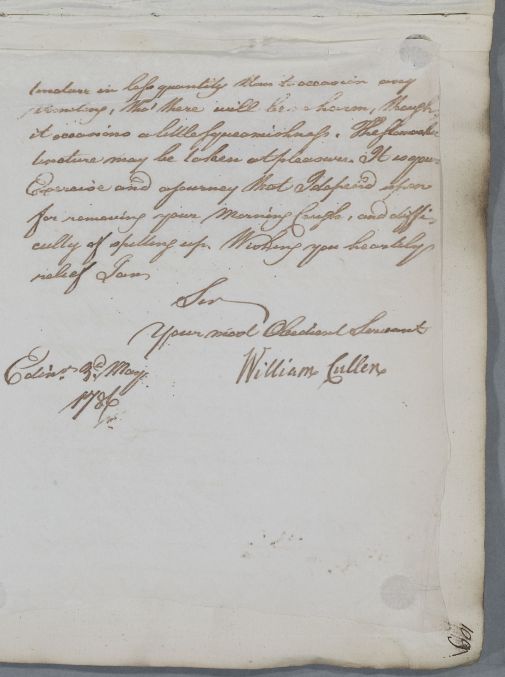 tincture in less quantity than to occasion any
vomiting, tho' there will be no harm, though
it occasions a little squeamishness. The Stomachic
tincture may be taken at pleasure. It is your
Exercise and a Journey that I depend upon
for removing your Morning Cough, and diffi-
culty of spitting up. Wishing you heartily
relief I am
Sir
Your most Obedient Servant
William Cullen
Edinr. 3d. May
1786